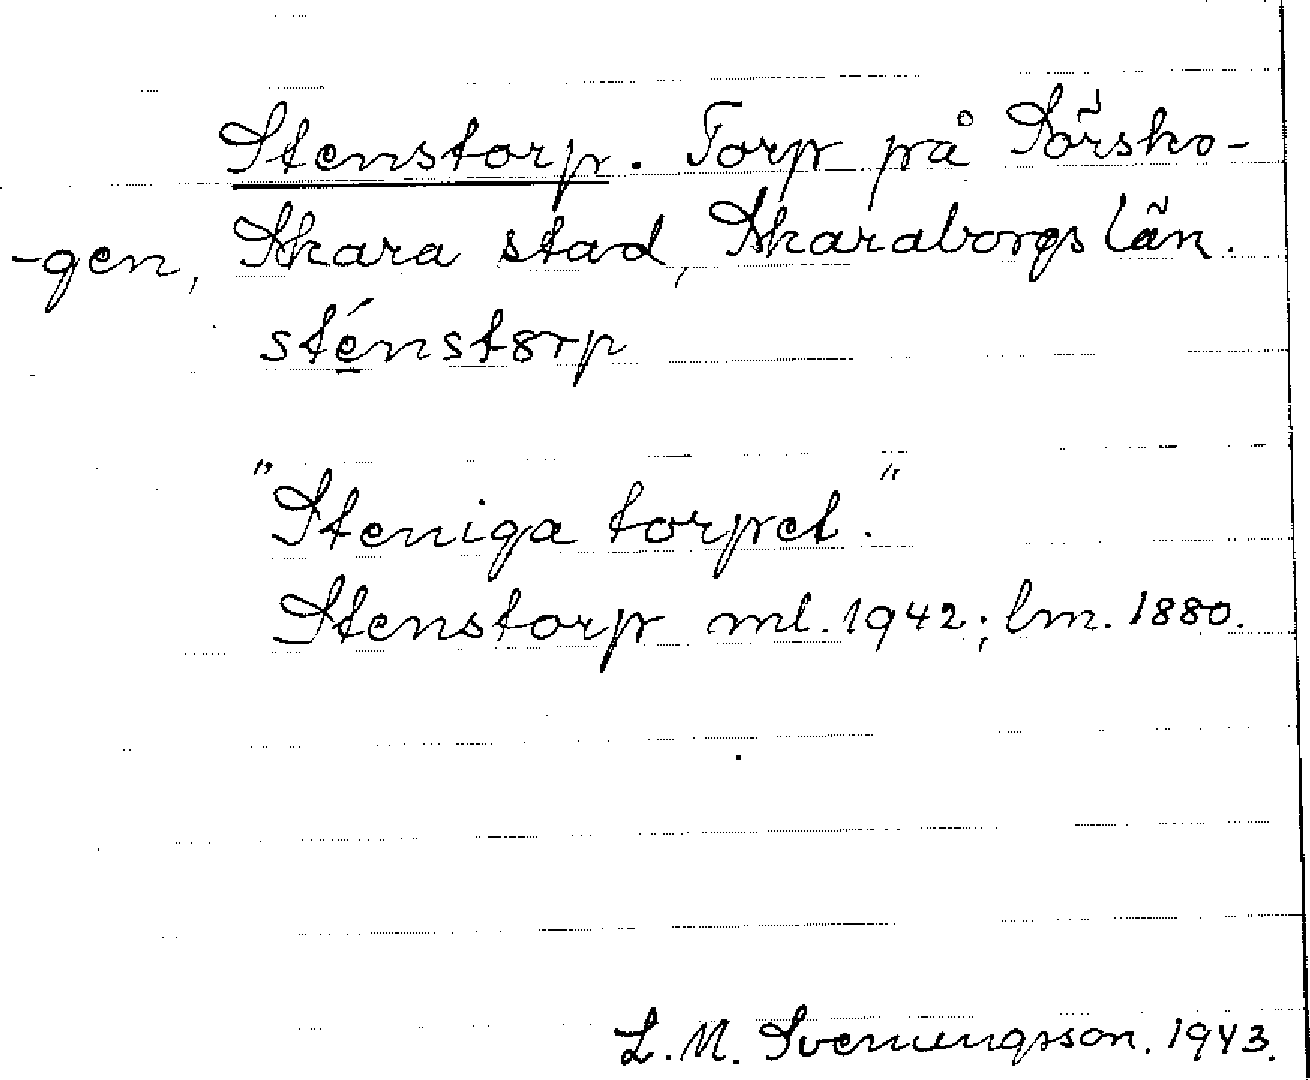 Stenstorp. Torp på Sörsko-
-gen, Skara stad, Skaraborgs län.
sténstɤrp
"Steniga torpet."
Stenstorp ml. 1942; lm. 1880.
L. M. Svenungsson. 1943.